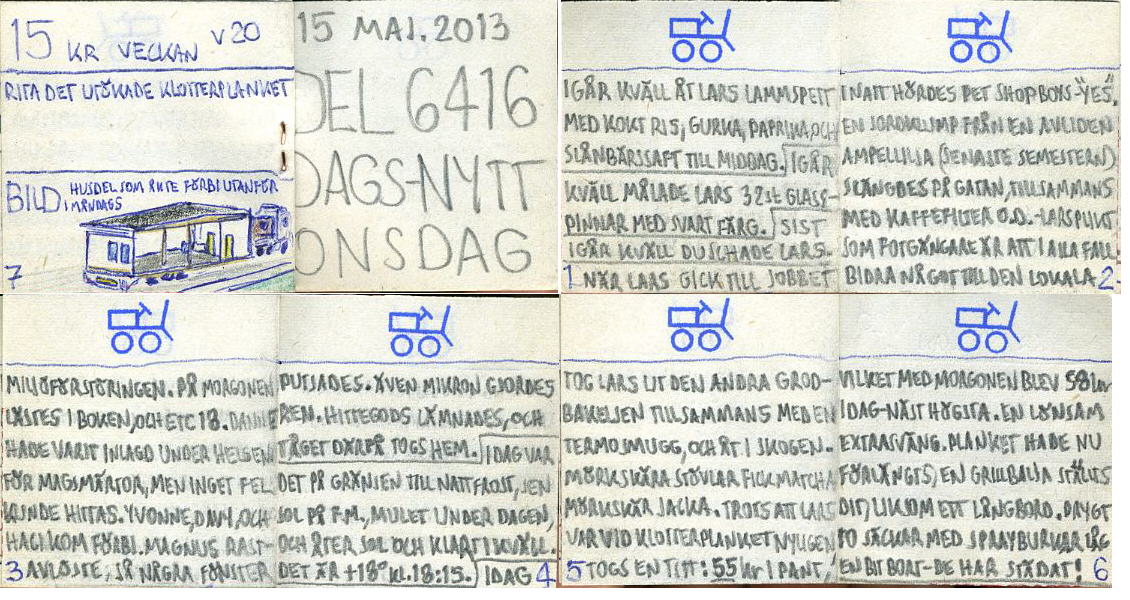 15 KR VECKAN V20
RITA DET UTÖKADE KLOTTERPLANKET
BILD HUSDEL SOM ÅKTE FÖRBI UTANFÖR
I MÅNDAGS
7
15 MAJ. 2013
DEL 6416
DAGS-NYTT
ONSDAG
IGÅR KVÄLL ÅT LARS LAMMSPETT
MED KOKT RIS, GURKA, PAPRIKA, OCH
SLÅNBÄRSSAFT TILL MIDDAG. IGÅR
KVÄLL MÅLADE LARS 32st GLASS-
PINNAR MED SVART FÄRG. SIST
IGÅR KVÄLL DUSCHADE LARS.
1 NÄR LARS GICK TILL JOBBET
INATT HÖRDES PET SHOP BOYS-"YES".
EN JORDKLUMP FRÅN EN AVLIDEN
AMPELLILJA (SENASTE SEMESTERN)
SLÄNGDES PÅ GATAN, TILLSAMMANS
MED KAFFEFILTER O.D.-LARS PLIKT
SOM FOTGÄNGARE ÄR ATT I ALLA FALL
BIDRA NÅGOT TILL DEN LOKALA 2
MILJÖFÖRSTÖRINGEN. PÅ MORGONEN
LÄSTES I BOKEN, OCH ETC 18. DANNE
HADE VARIT INLAGD UNDER HELGEN
FÖR MAGSMÄRTOR, MEN INGET FEL
KUNDE HITTAS. YVONNE, DAVY, OCH
HACI KOM FÖRBI. MAGNUS RAST-
3 AVLÖSTE, SÅ NÅGRA FÖNSTER
PUTSADES. ÄVEN MIKRON GJORDES
REN. HITTEGODS LÄMNADES, OCH
TÅGET DÄRPÅ TOGS HEM. IDAG VAR
DET PÅ GRÄNSEN TILL NATTFROST, SEN
SOL PÅ F.M., MULET UNDER DAGEN,
OCH ÅTER SOL OCH KLART I KVÄLL.
DET ÄR +18° KL.18:15. IDAG 4
TOG LARS UT DEN ANDRA GROD-
BAKELSEN TILLSAMMANS MED EN
TERMOSMUGG, OCH ÅT I SKOGEN.
MÖRKSKÄRA STÖVLAR FICK MATCHA
MÖRKSKÄR JACKA. TROTS ATT LARS
VAR VID KLOTTERPLANKET NYLIGEN
5 TOGS EN TITT: 55 kr I PANT,
VILKET MED MORGONEN BLEV 58 kr
IDAG-NÄST HÖGSTA. EN LÖNSAM
EXTRASVÄNG. PLANKET HADE NU
FÖRLÄNGTS, EN GRILLBALJA STÄLLTS
DIT, LIKSOM ETT LÅNGBORD. DRYGT
10 SÄCKAR MED SPRAYBURKAR LÅG
EN BIT BORT-DE HAR STÄDAT! 6